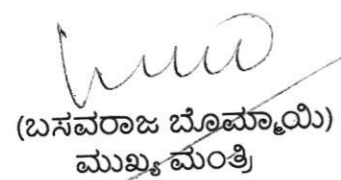 (ಬಸವರಾಜ ಬೊಮ್ಮಾಯಿ)
ಮುಖ್ಯ ಮಂತ್ರಿ